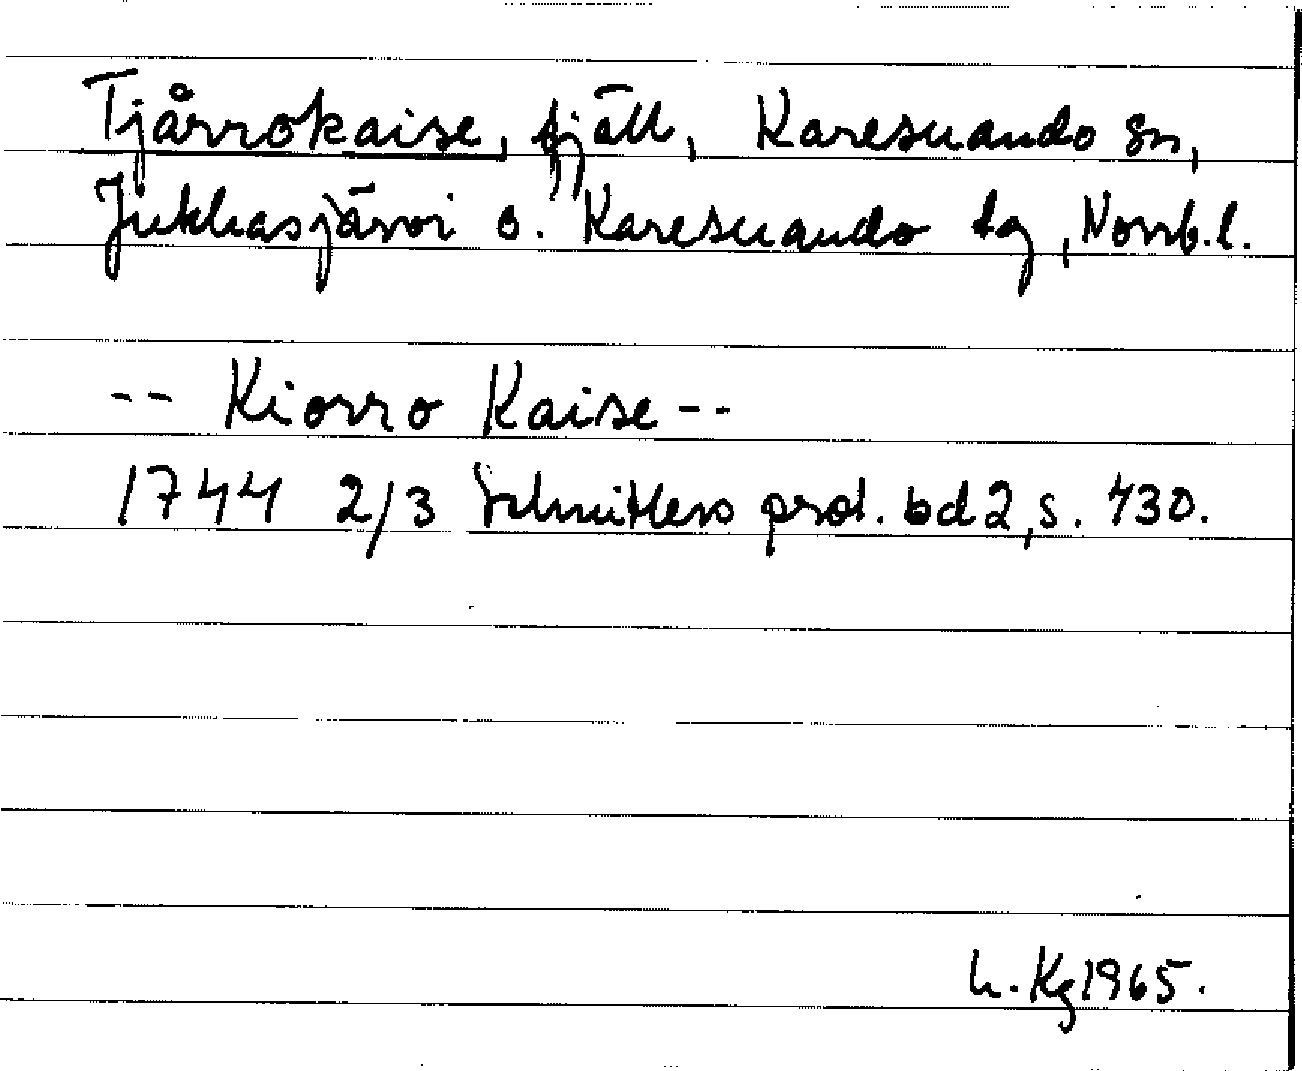 Tjårrokaise, fjäll, Karesuando sn,
Jukkasjärvi o. Karesuando tg, Norrb.l.
-- Kiorro Kaise --
1744 2/3 Schnitlers prot. bd 2, s. 430.
h. Kg 1965.